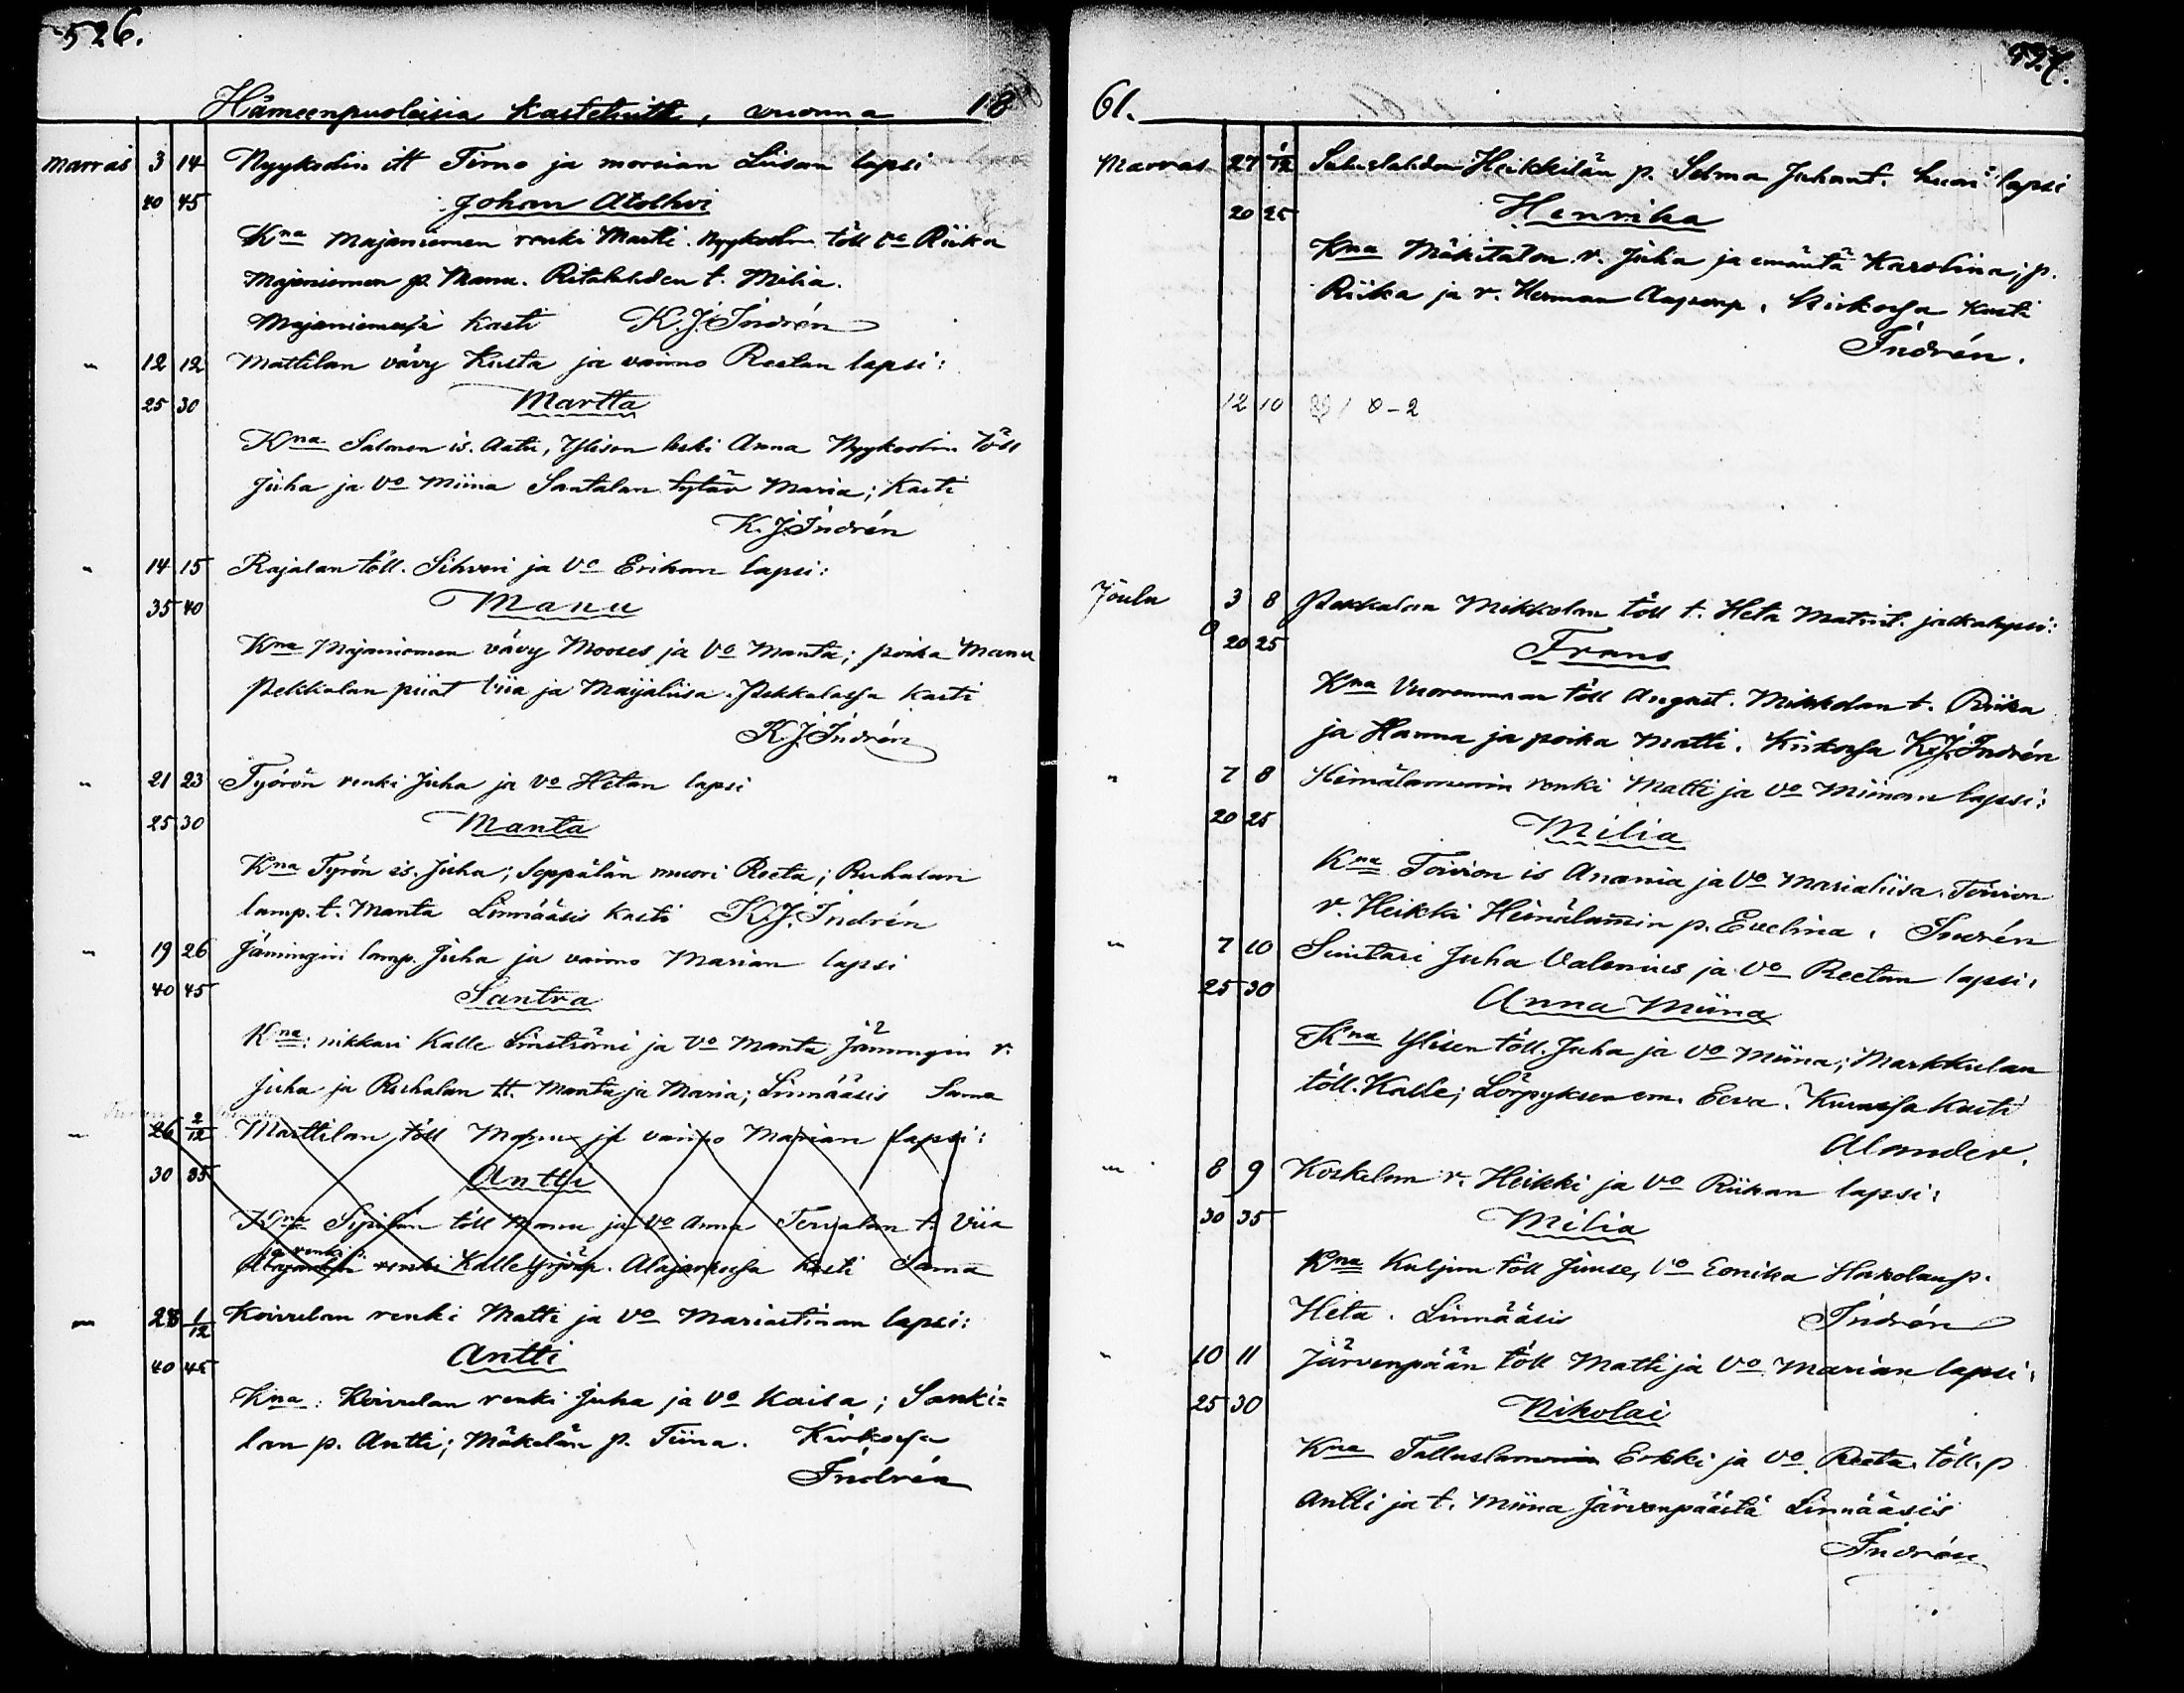 526.
Hämeenpuoleisia Kastetuita, vuonna 18
marras 3 14 Nyykodin itt Timo ja morsian Liisan lapsi
40 45 Johan Atolhvi
Kna Majaniemen renki Martti. Nyykodin töll vo Riika
Majaniemen p. Manu. Ritalahden t. Milia.
Majaniemessä kasti K. J. Indrén
" 12 12 Mattilan vävy Kusta ja vaimo Reetan lapsi:
25 30 Martta
Kna Salonen is. Aatu, Ylisen leski Anna Nyykodin töll
Juha ja Vo Miina Santalan tytär Maria; Kasti
K. J. Indrén
" 14 15 Rajalan töll. Sihveri ja Vo Erikan lapsi:
35 40 Manu
Kna Majaniemen vävy Mooses ja Vo Manta; poika Manu
Pekkalan piiat Viia ja Maijaliisa. Pekkalassa kasti
K J. Indrén
" 21 23 Työrön renki Juha ja Vo Hetan lapsi
25 30 Manta
Kna Tyrön is. Juha; Seppälän muori Reeta; Ruhalan
lamp. t. Manta Linnääsis kasti K. J. Indrén
" 19 26 Jämingin lamp. Juha ja vaimo Marian lapsi
40 45 Santra
Kna: nikkari Kalle Linströmi ja Vo Manta Jämingin r.
Juha ja Ruhalan tt. Manta ja Maria; Linnääsis Sama
" 26 2/12 Marttilan töll Manu ja vaimo Marian lapsi:
30 35 Antti
Kna Sipilän töll Manu ja Vo Anna Tervalan t. Viia
ja renki
renki Kalle Yrjönp. Alajärvessä kasti Sama
" 28 1/12 Koivulan renki Matti ja Vo Mariastiinan lapsi:
40 45 Antti
Kna: Koivulan renki Juha ja Vo Kaisa; Sonki=
lan p. Antti; Mäkelän p. Tiina. Kirkossa
Indrén
527.
61.
Marras 27 1/12 Heikkilän p. Selma Juhant. huor. lapsi
20 25 Henrika
Kna Mäkitalon r. Juha ja emäntä Karolina; p.
Riika ja r. Herman Aapramp. Kirkossa kasti
Indrén.
12 10 8-2
Joulu 3 8 Pekkalan Mikkolan töll t. Heta Matint. jalkalapsi:
0 20 25 Frans
Kna Vuorenmaan töll August. Mikkolan t. Riika
ja Hanna ja poika Matti. Kirkossa K. J. Indrén
" 7 8 Heinälammin renki Matti ja Vo Miinan lapsi:
20 25 Milia
Kna Toivion is Anania ja Vo Marialiisa. Toivion
r. Heikki Heinälammin p. Evelina. Indrén
" 7 10 Suutari Juha Valenius ja Vo Reetan lapsi:
25 30 Anna Miina
Kna Ylisen töll. Juha ja Vo Miina; Markkulan
töll. Kalle; Löppyksen em. Eeva. Kurussa kasti
Alander.
" 8 9 Koskelan r. Heikki ja Vo Riikan lapsi:
30 35 Milia
Kna Kuljun töll Juuse, Vo Eerika Hakolan p.
Heta. Linnääsis Indrén
" 10 11 Järvenpään töll Matti ja Vo Marian lapsi:
25 30 Nikolai
Kna Talluslammin Erkki ja Vo Reeta. töll. p
Antti ja t. Miina Järvenpäästä Linnääsis
Indrén